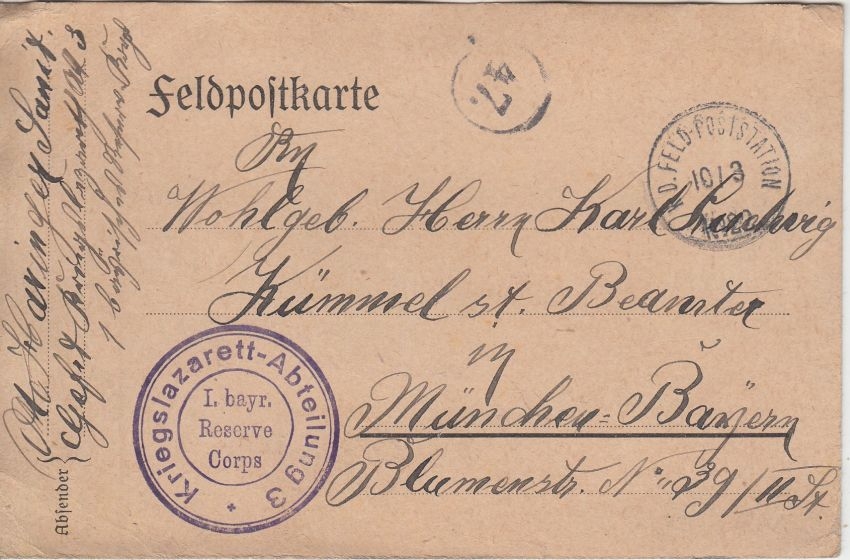 Feldpostkarte
47.
K.D. FELD-POSTSTATION
10 I 3
An
Wohlgeb. Herrn Karl Ludwig
Kümmel st. Beamter
in
München-Bayern
Blumenstr. No 39/II St
Kriegslazarett-Abteilung 3
I. bayr.
Reserve
Corps
Absender
Otto Haringer Sanit.
3
1